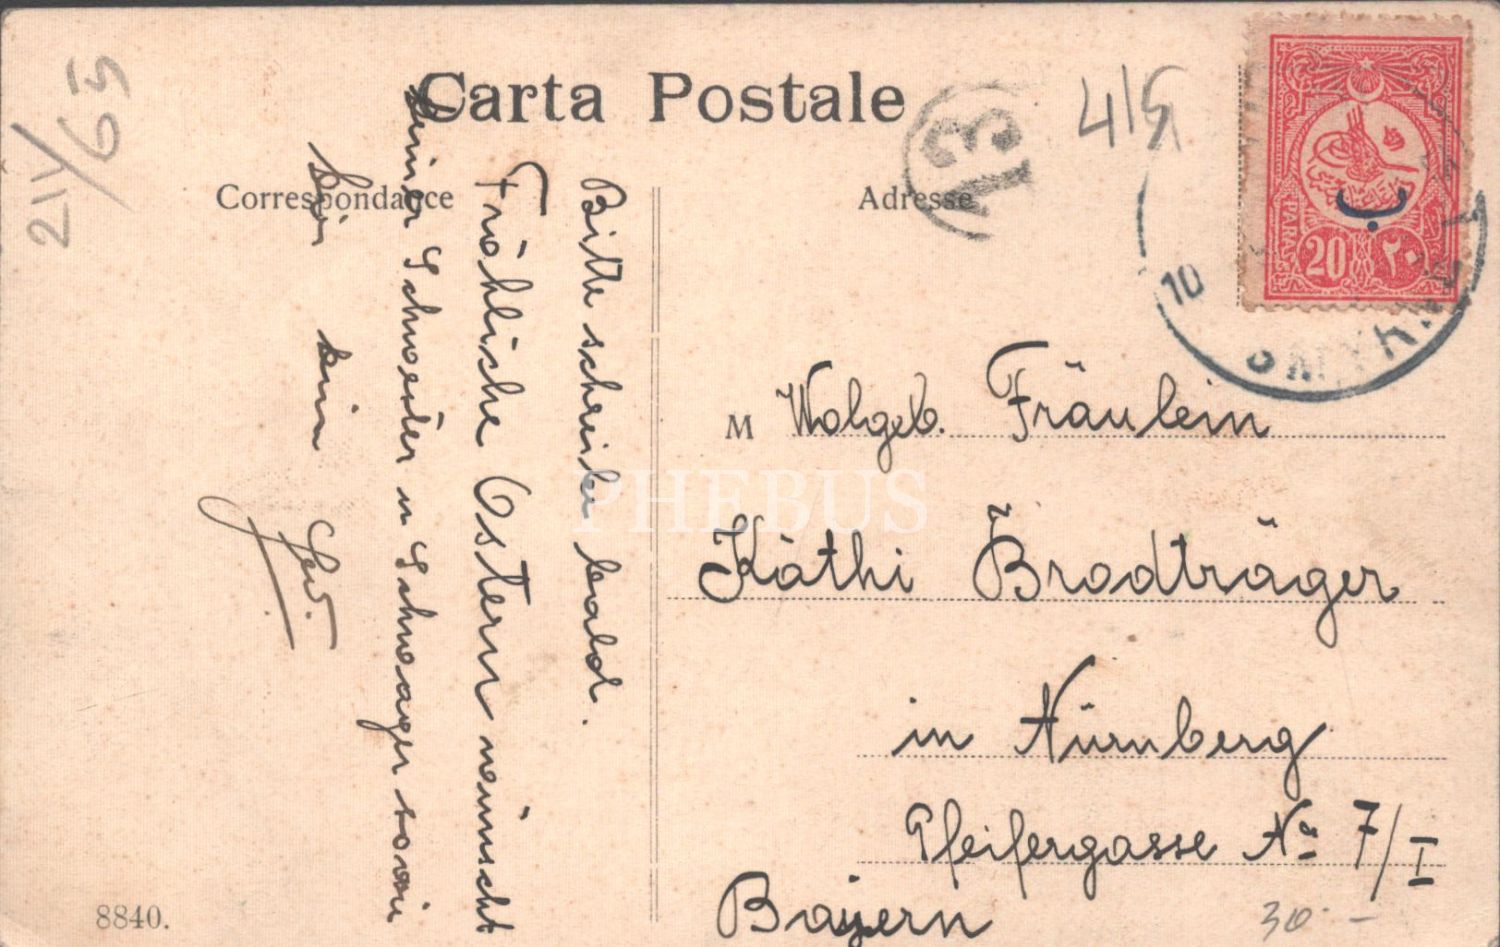 Carta Postale
Correspondance
Adresse
Bitte schreibe bald.
Fröhliche Ostern wünscht
deiner Schwester u Schwager sowie
dir dein
13
10
SMYRNE
ب
PARAS
20 ٢٠
M Wolgeb. Fräulein
Käthi Brodträger
in Nürnberg
Pfeifergasse No 7/I
Bayern
8840.
30.-
PHEBUS